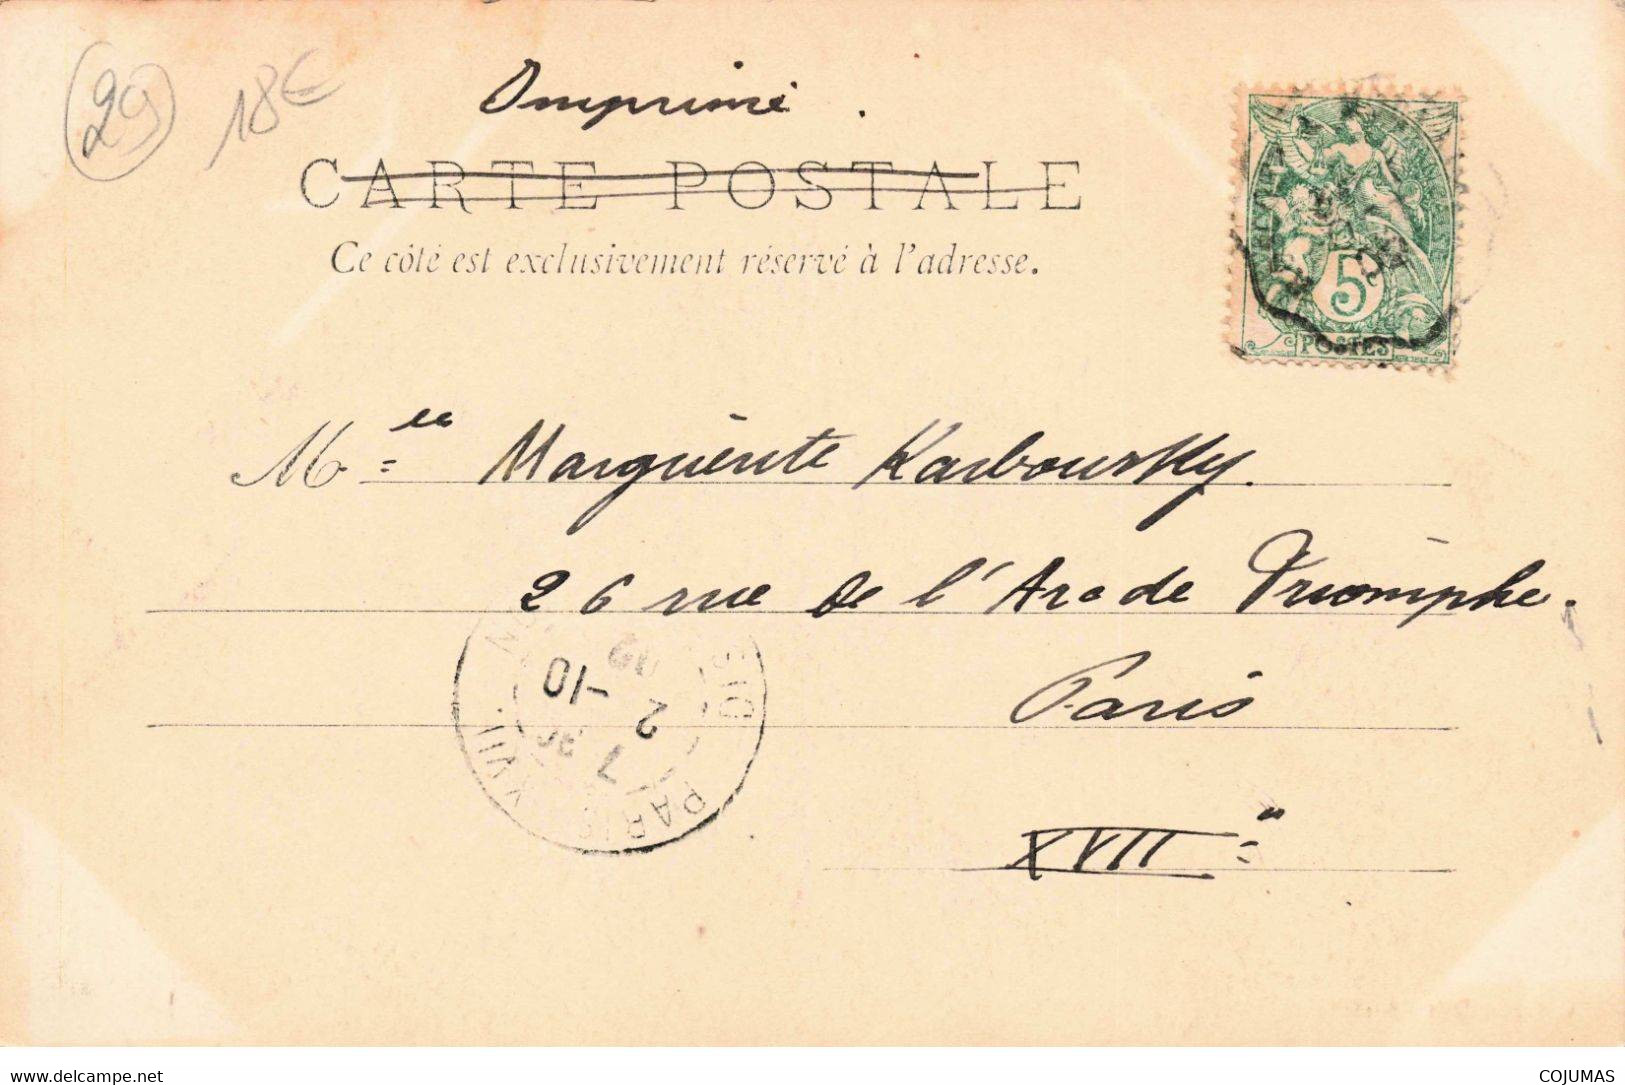 29
18€
Imprimé.
CARTE POSTALE
Ce côté est exclusivement réservé à l'adresse.
5
POSTES
M lle Marguerite Karbowsky.
26 rue de l'Arc de Triomphe.
Paris
XVII e
PARIS XVII. DIS
7
2 -10
delcampe.net
COJUMAS